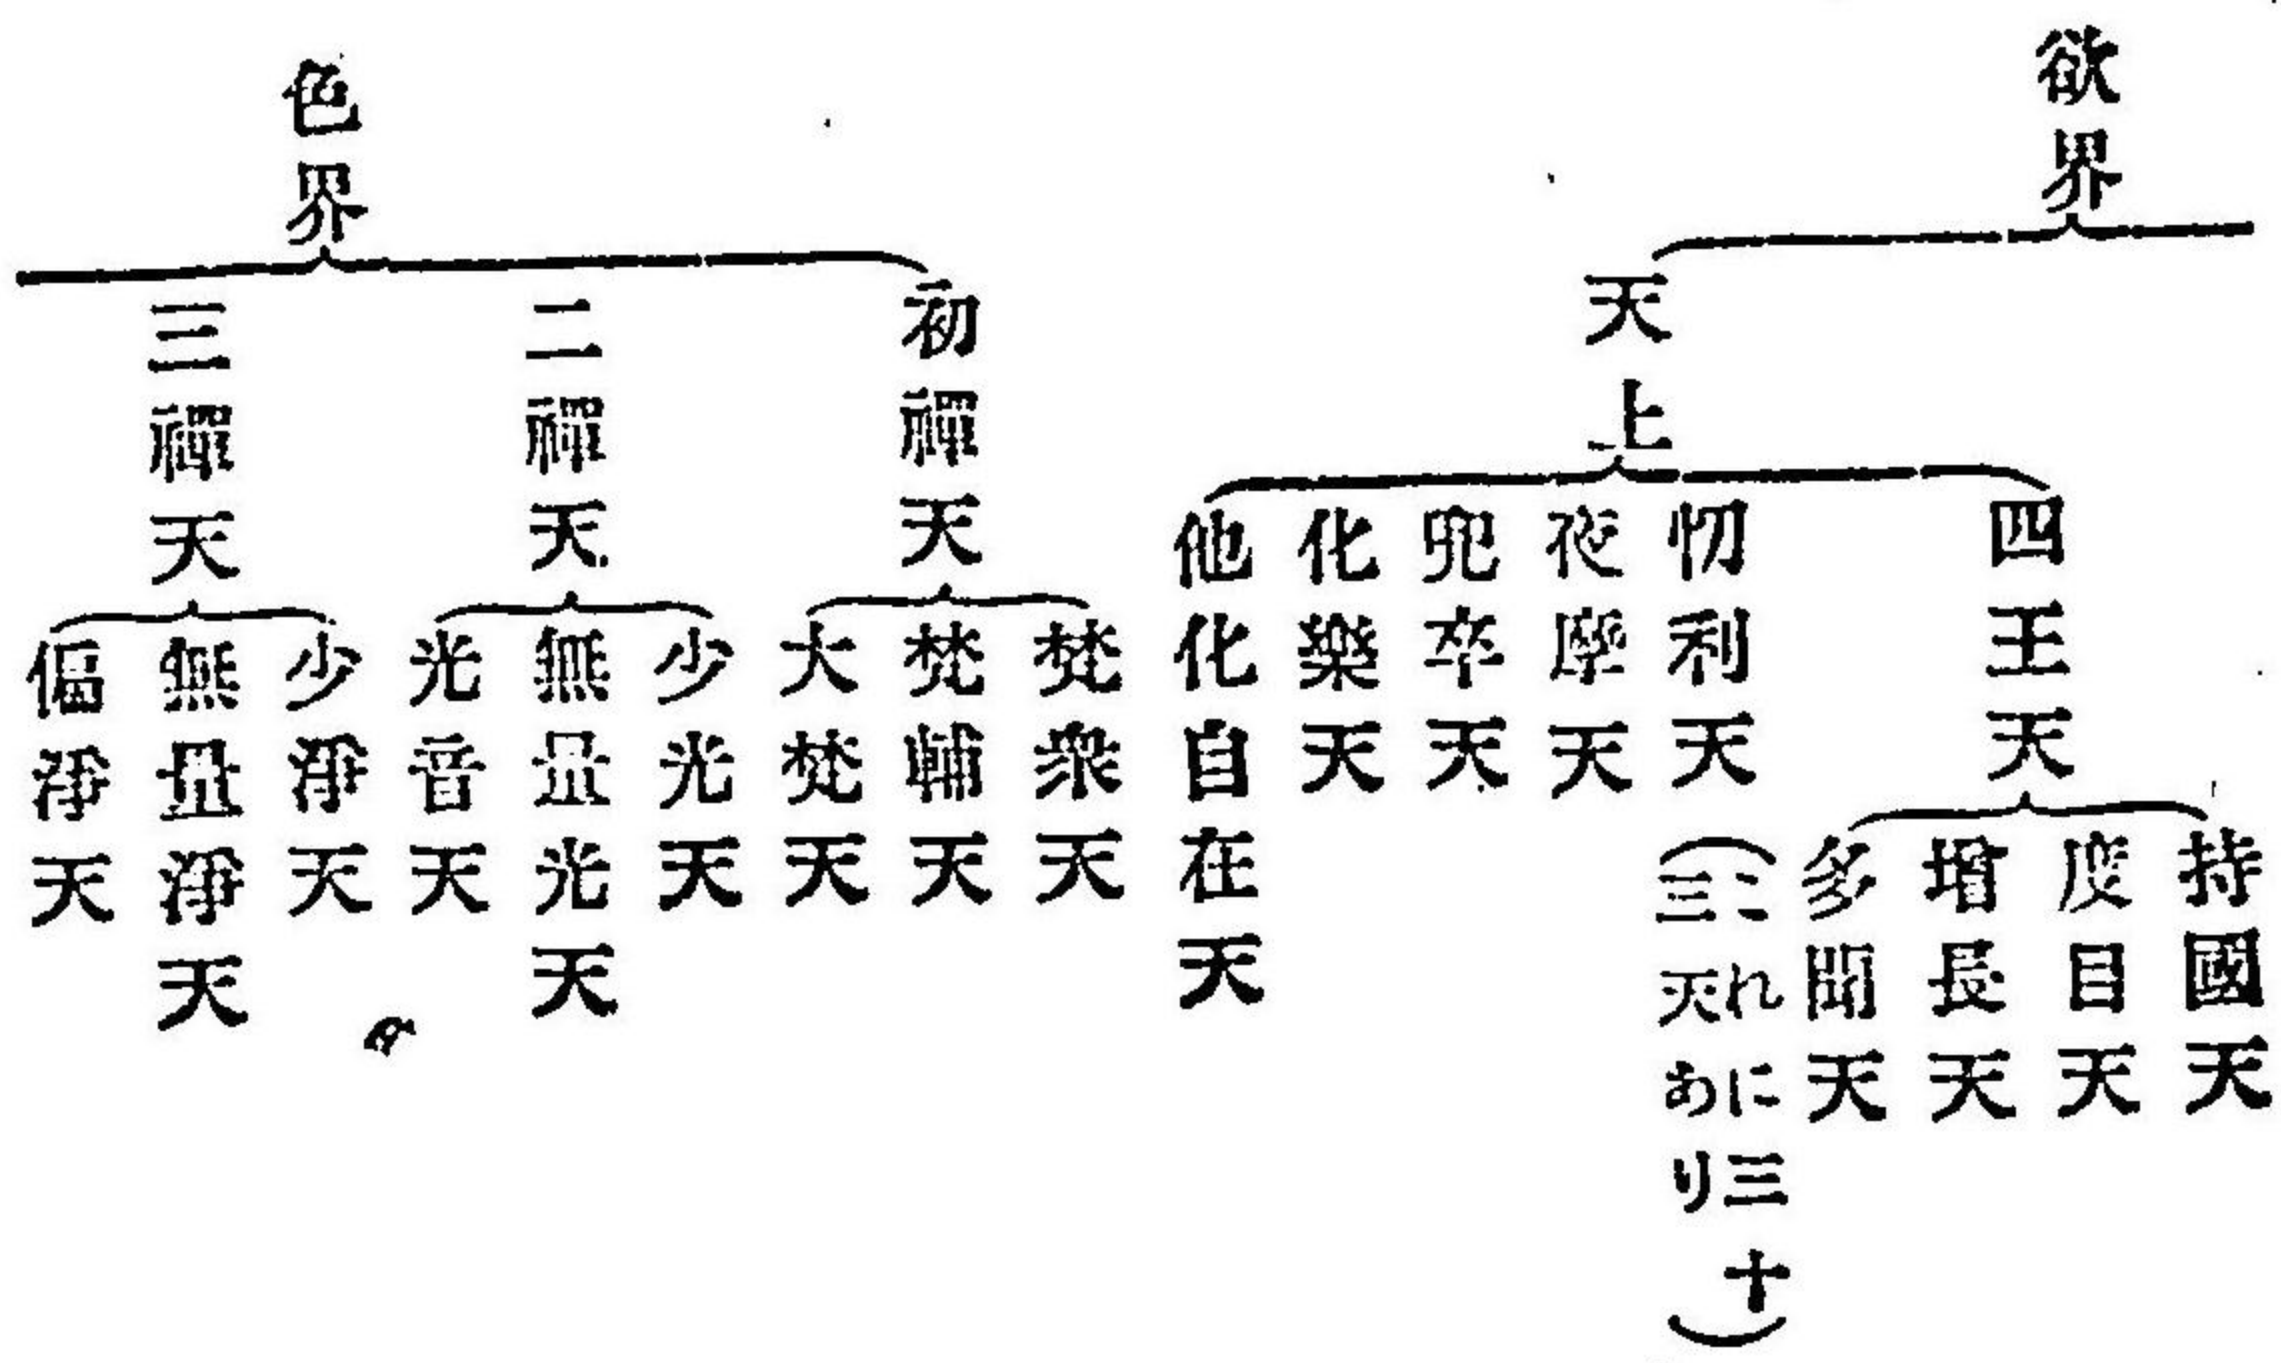 欲界
天上
四王天
持國天
廣目天
增長天
多聞天
忉利天
(これに三十
三天あり)
夜摩天
兜率天
化樂天
他化自在天
色界
初禪天
梵衆天
梵輔天
大梵天
二禪天
少光天
無量光天
光音天
三禪天
少淨天
無量淨天
偏淨天